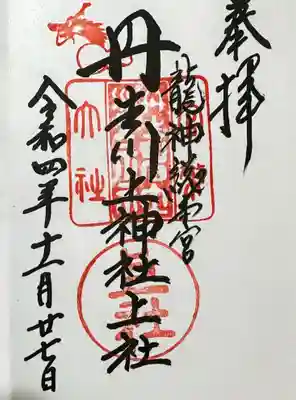 奉拝
龍神総本宮
丹生川上神社上社
大社
令和四年十一月廿七日